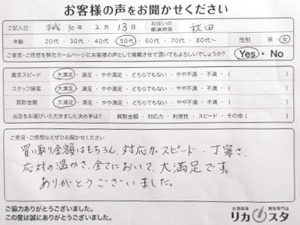 お客様の声をお聞かせください
ご記入日 平成 30年 2月 13日 お住いの都道府県 秋田
年齢 20代・30代・40代・50代・60代・70代・80代〜 性別 男・女
ご意見・ご感想を弊社ホームページにお客様の声として掲載させて頂いてもよろしいでしょうか? Yes・No
査定スピード 大満足・満足・やや満足・どちらでもない・やや不満・不満・(
スタッフ接客 大満足・満足・やや満足・どちらでもない・やや不満・不満・(
買取金額 大満足・満足・やや満足・どちらでもない・やや不満・不満・(
当店をお選びいただきました決め手は? 買取金額・対応力・利便性・スピード・その他(
ご意見・ご感想などぜひお聞かせください
買い取り金額はもちろん、対応力、スピード、丁寧さ、
応対の温かさ、全てにおいて、大満足です。
ありがとうございました。
ご協力ありがとうございました。
この度は誠にありがとうございました。
お酒買取 査定専門店
リカスタ